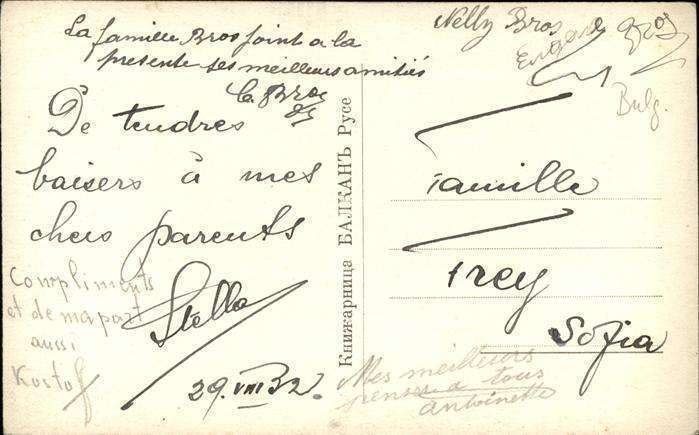 La famille Bros joint a la
presente ses meilleurs amitiés
Bros
De tendres
baisers à mes
chers parents
Stella
29.VIII 32.
Compliments
et de ma part
aussi
Kostof
Книжарница БАЛКАНЪ Русе
Nelly Bros
Bros
Bulg.
Famille
Frey
Sofia
Mes meilleurs
a tous
antoinette